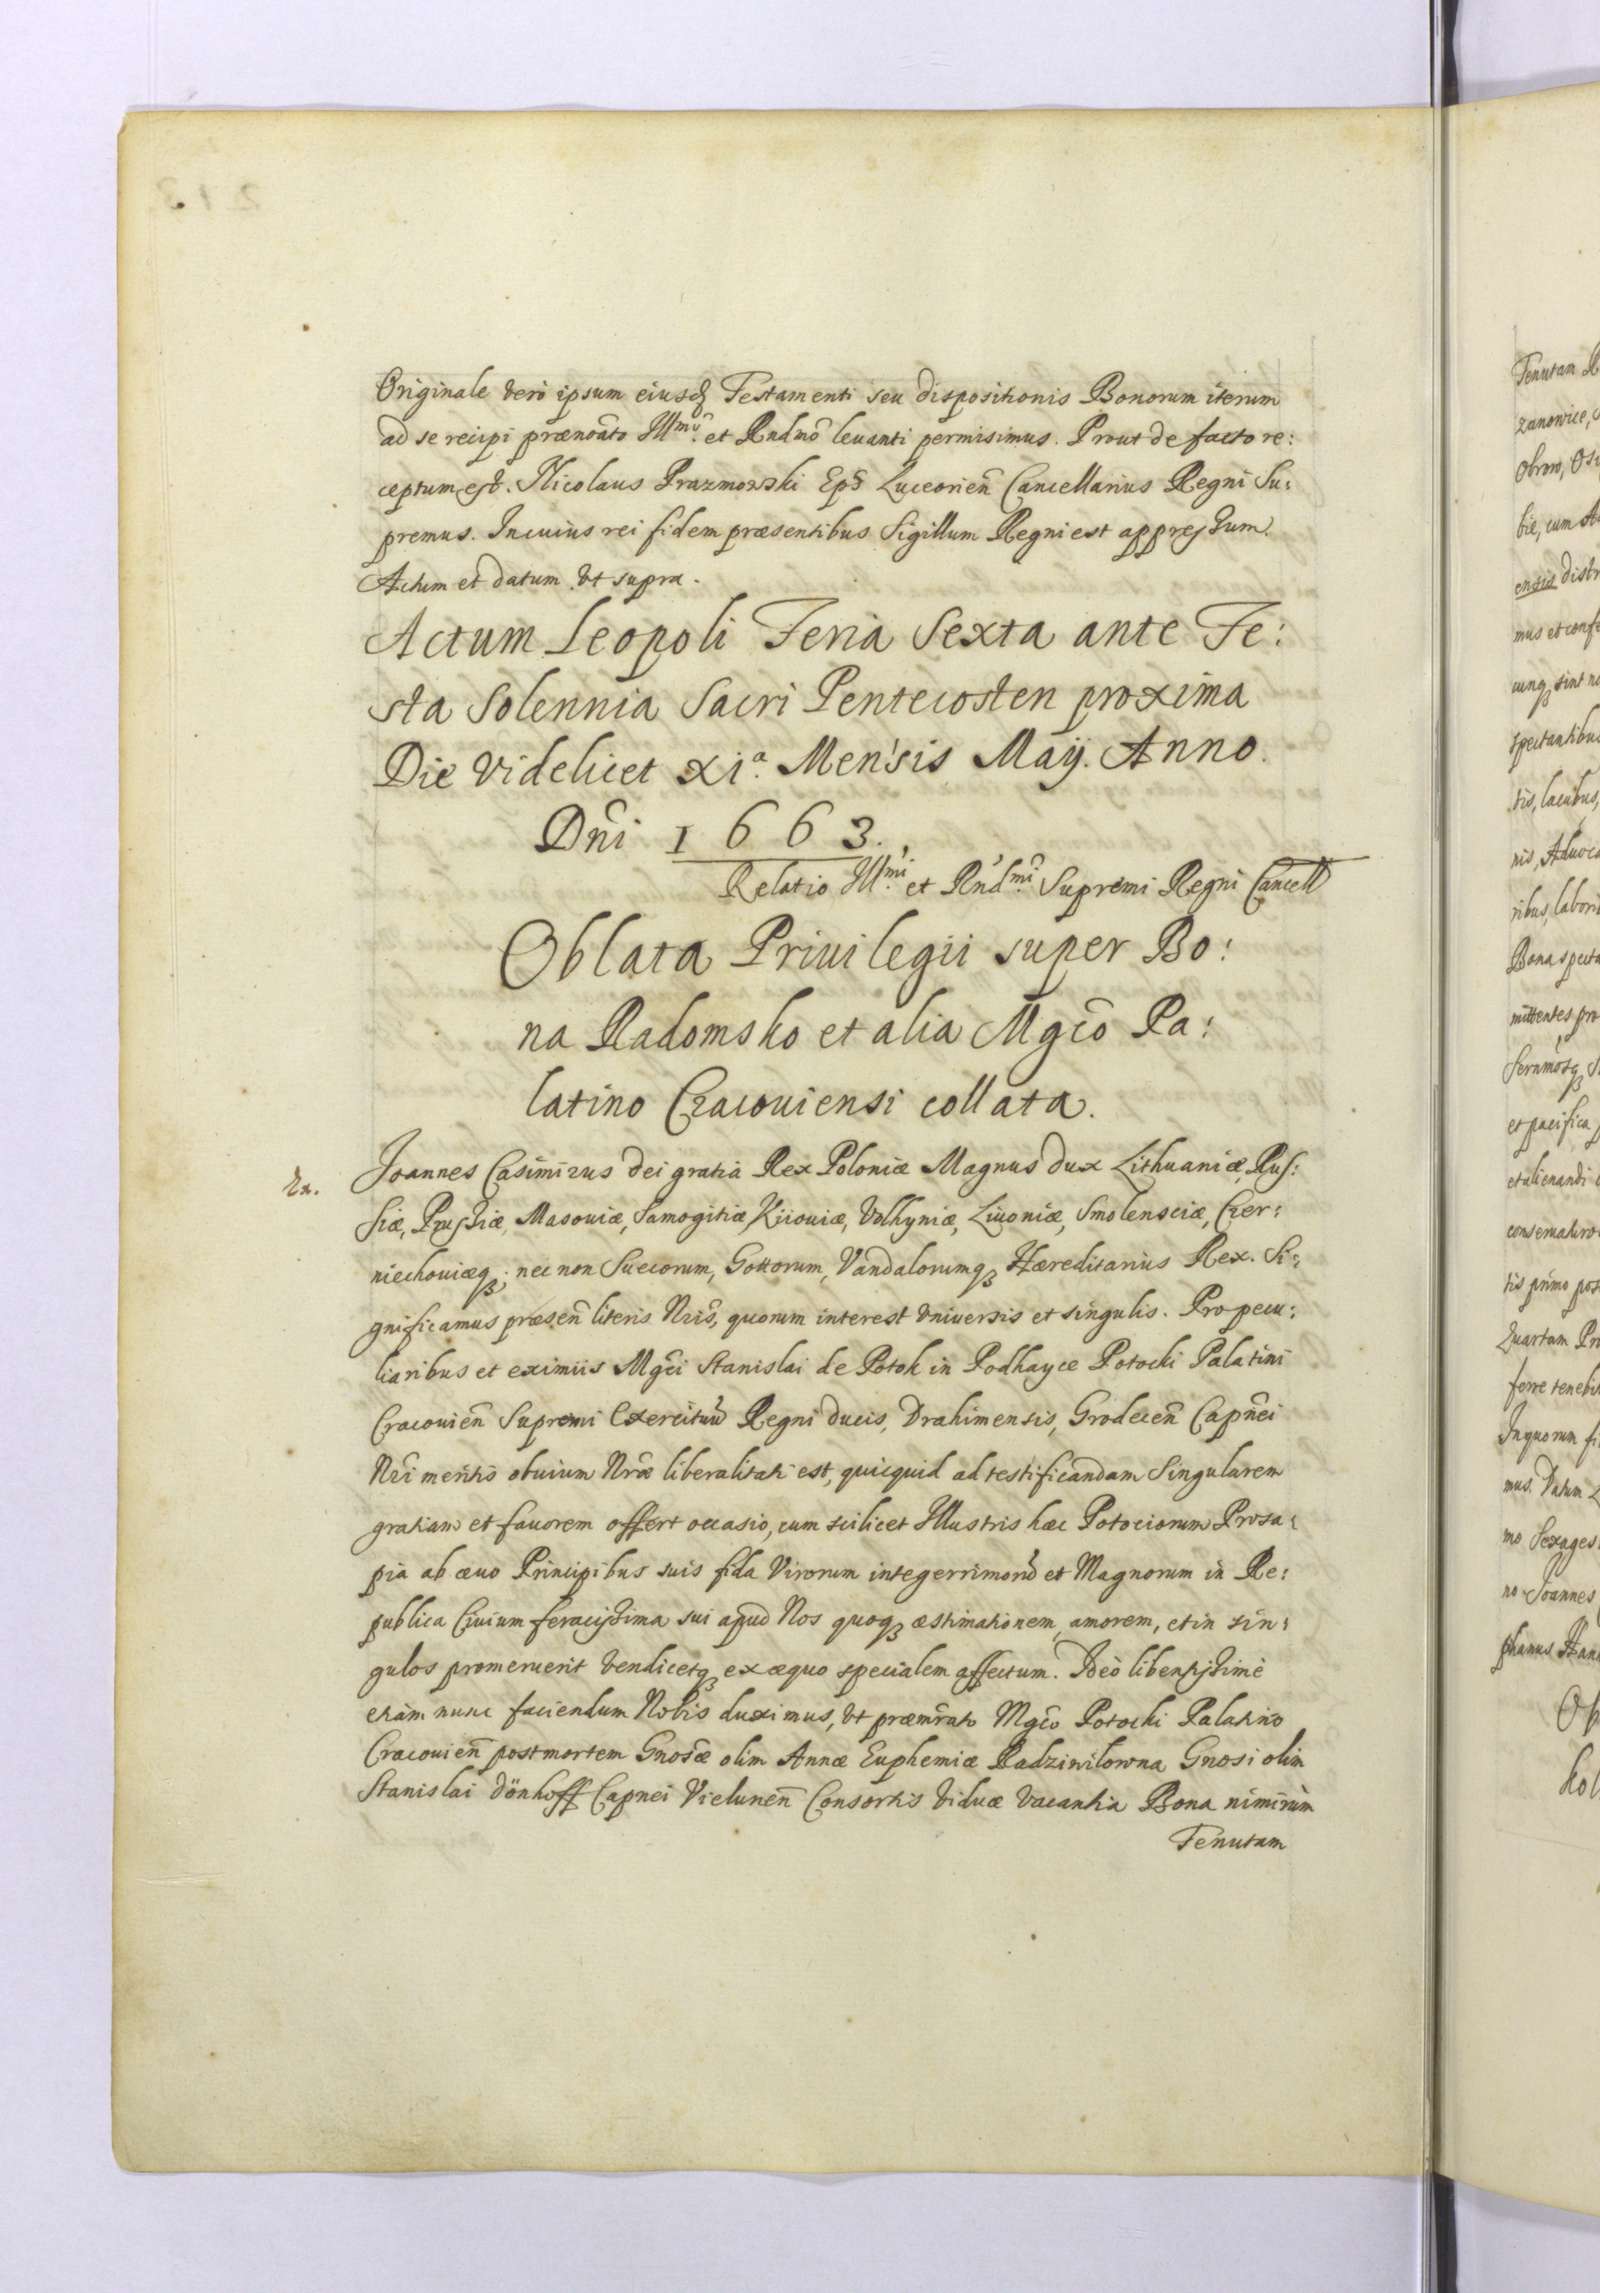 Originale verò ipsum eiusd Testamenti seu dispositionis Bonorum iterum
ad se recipi prænoãto Illmõ et Rndmõ levanti permisimus. Prout de facto re:
ceptum est. Nicolaus Prazmowski Epš Luceorieñ Cancellarius Regni Su:
premus. In cuius rei fidem præsentibus Sigillum Regni est appressum.
Actum et datum vt supra.
Actum Leopoli Feria Sexta ante Fe:
sta Solennia Sacri Pentecosten proxima
Die videlicet xiª. Mensis Maij. Anno.
Dñi 1663.
Relatio Illmi et Rndmi Supremi Regni Cancell
Oblata Priuilegii super Bo:
na Radomsko et alia Mgcõ Pa:
latino Cracouiensi collata.
Joannes Casimirus Dei gratia Rex Poloniæ Magnus dux Lithuaniæ, Rus:
siæ, Prussiæ, Masouiæ, Samogitiæ, Kiiouiæ, Volhyniæ, Liuoniæ, Smolensciæ, Czer:
niechouiæq; nec non Suecorum, Gottorum, Vandalorumq Hæreditarius Rex. Si:
gnificamus præseñ literis Nris, quorum interest vniversis et singulis. Pro pecu:
liaribus et eximiis Mgci Stanislai de Potok in Podhayce Potocki Palatini
Cracouieñ Supremi Exercituu Regni ducis, Drahimensis, Grodeceñ Capnei
Nri meritis obuium Nræ liberalitati est, quicquid ad testificandam Singularem
gratiam et fauorem offert occasio, cum scilicet Illustris hæc Potociorum Prosa:
pia ab æuo Principibus suis fida Virorum integerrimorũ et Magnorum in Re:
publica Ciuium feracissima sui apud Nos quoq æstimationem, amorem, et in sin:
gulos promeruerit vendicetq ex æquo specialem affectum. Ideò libentissimè
etiam nunc faciendum Nobis duximus, vt præmrato Mgco Potocki Palatino
Cracouieñ post mortem Gnosæ olim Annæ Euphemiæ Radziwilowna Gnosi olim
Stanislai Dönhoff Capnei Vieluneñ Consortis viduæ vacantia Bona nimirum
Tenutam